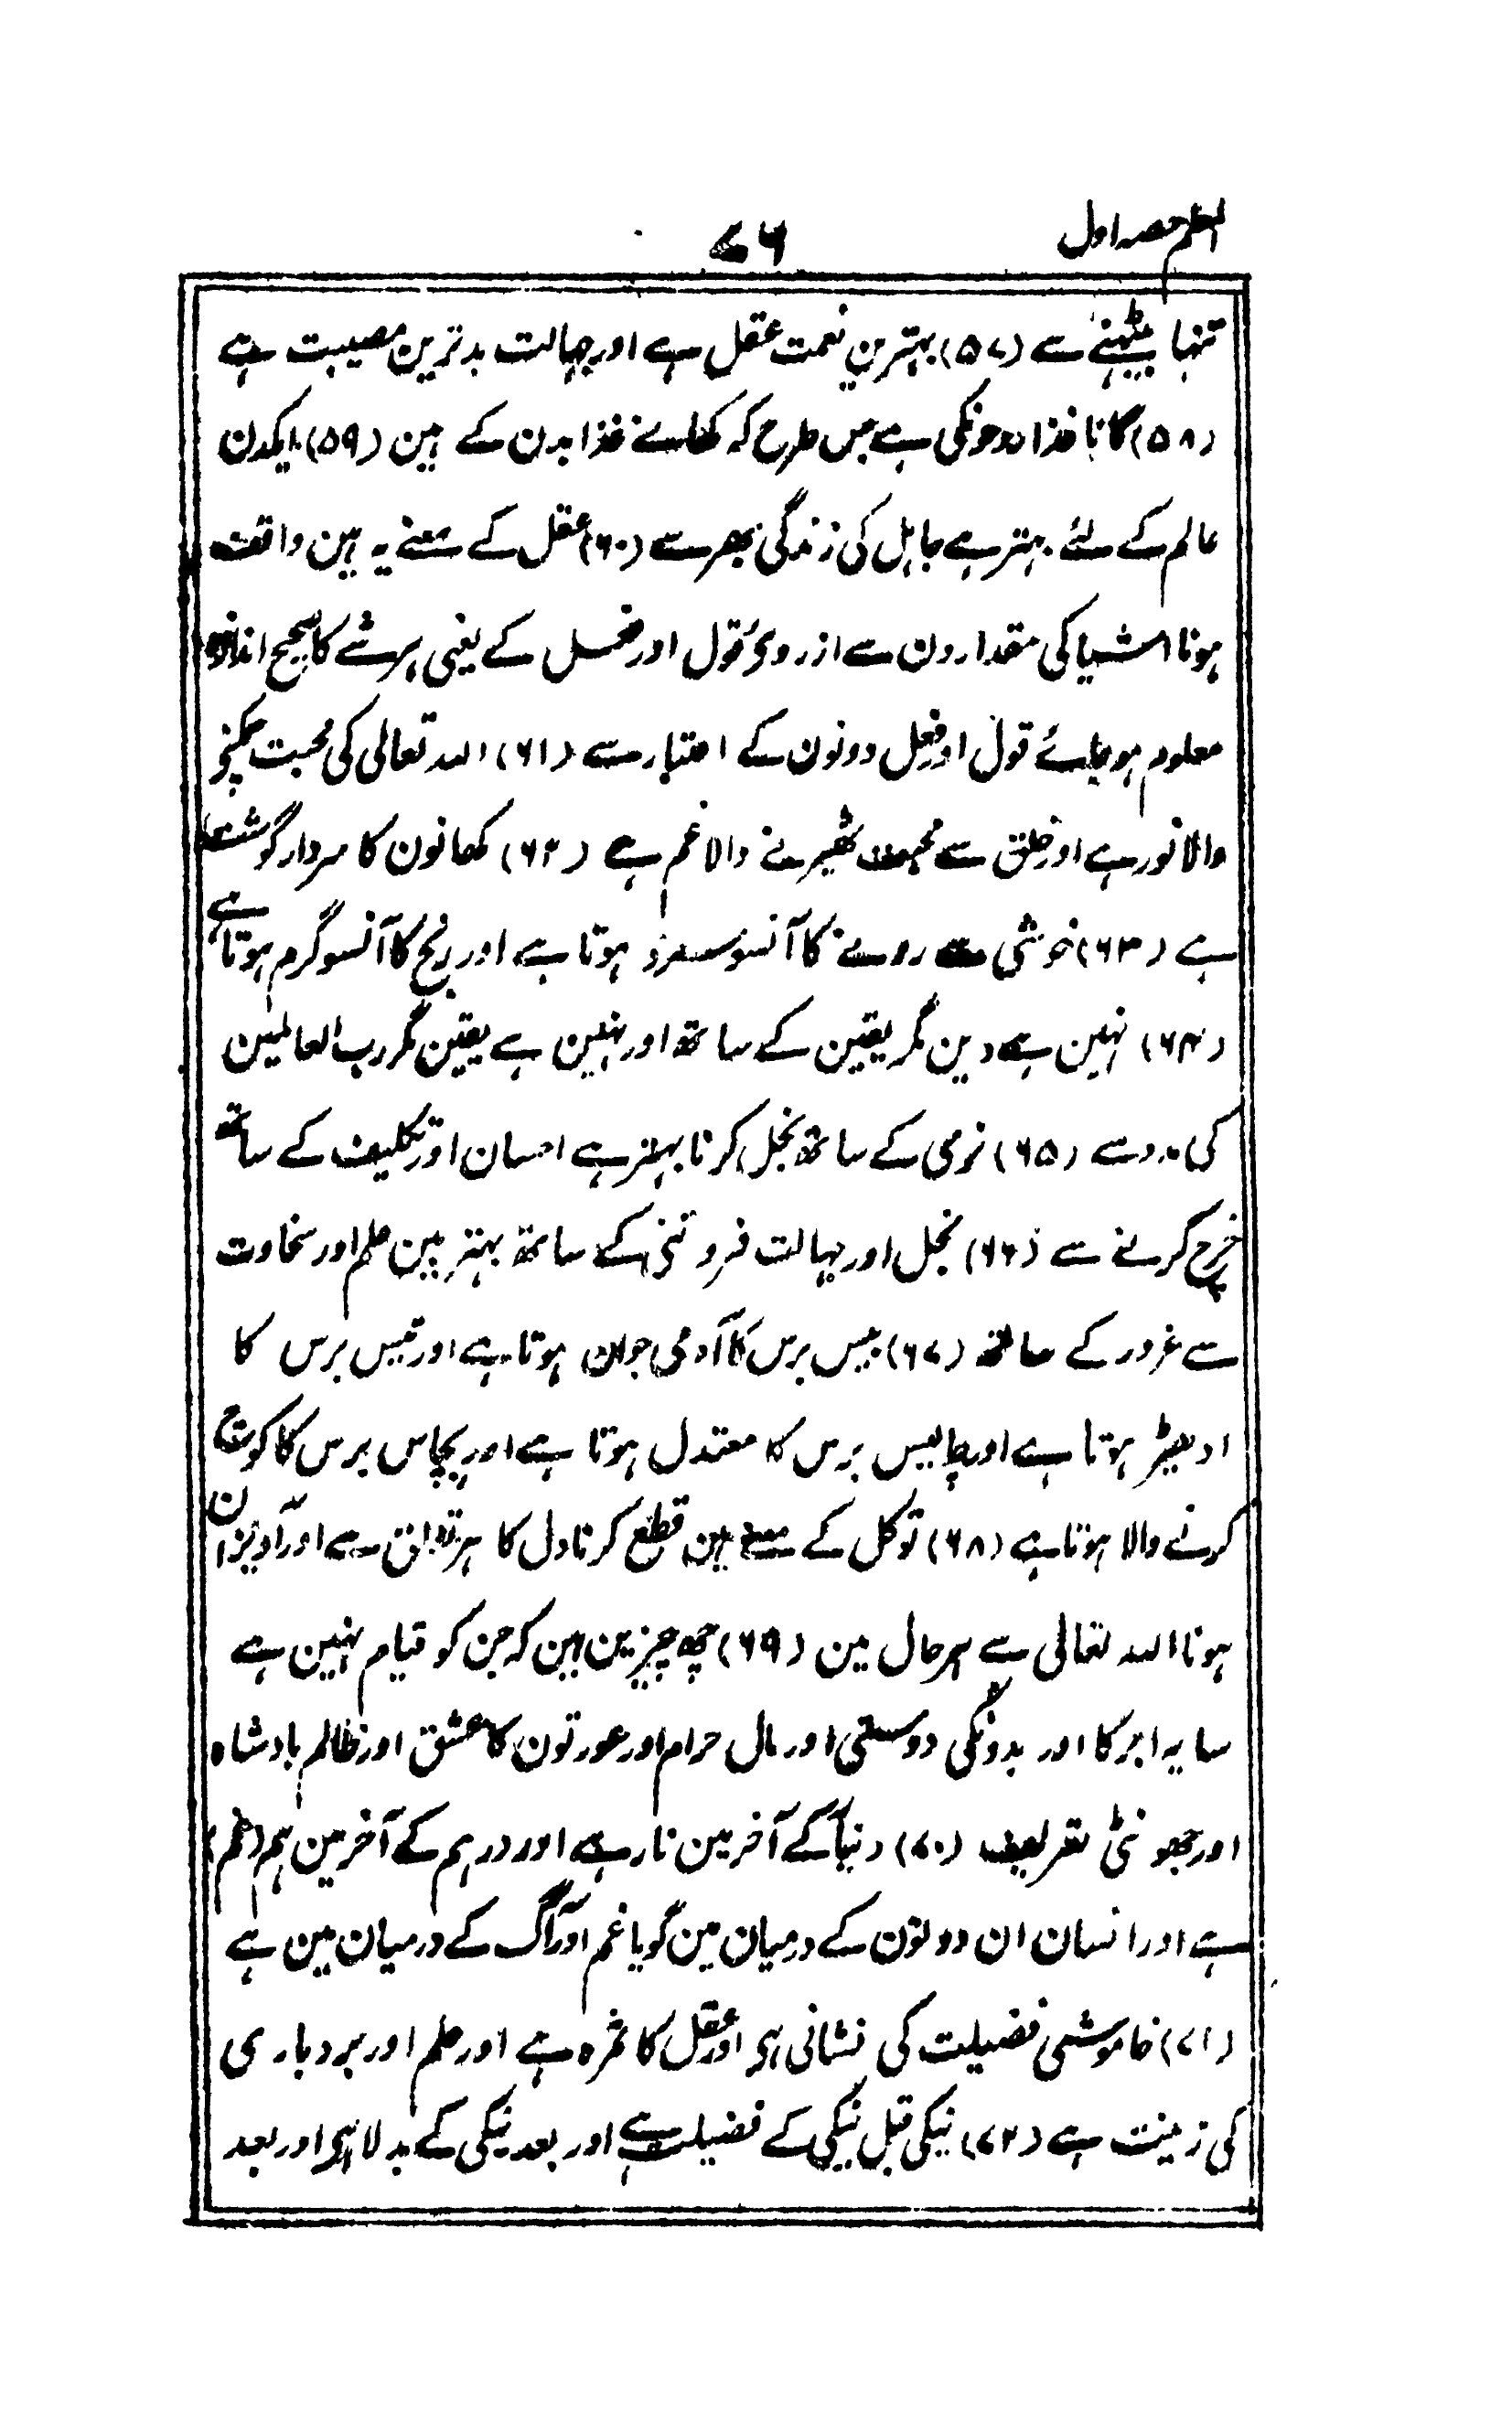 حصہ اول
۷۶
تنہا بیٹہنے سے (۵۷) بہترین نعمت عقل ہے اور جہالت بدترین مصیبت ہے
(۵۸) گانا غذا روحونکی ہے جس طرح کہ کھانے غذا بدن کے ہین (۵۹) ایکدن
عالم کے لئے بہتر ہے جاہل کی زندگی بھر سے (۶۰) عقل کے معنے یہ ہین واقف
ہونا اشیا کی مقدارون سے ازروئ قول اور فعل کے یعنی ہر شے کا صحیح اندازہ
معلوم ہو جائے قول اور فعل دونون کے اعتبار سے (۶۱) اللہ تعالی کی محبت
والا نور ہے اور خلق سے ٹھیرنے والا غم ہے (۶۲) کھانون کا سردار گوشت
ہے (۶۳) خوشی سے رونے کا آنسو سرد ہوتا ہے اور رنج کا آنسو گرم ہوتا ہے
(۶۴) نہین ہے دین مگر یقین کے ساتھ اور نہین ہے یقین مگر رب العالمین
کی مدد سے (۶۵) نرمی کے ساتھ بخل کرنا بہتر ہے احسان اور تکلیف کے ساتھ
خرچ کرنے سے (۶۶) بخل اور جہالت فروتنی کے ساتھ بہتر ہین علم اور سخاوت
سے غرور کے ساتھ (۶۷) بیس برس کا آدمی جوان ہوتا ہے اور تیس برس کا
ادھیڑ ہوتا ہے اور چالیس برس کا معتدل ہوتا ہے اور پچاس برس کا کوچ
کرنے والا ہوتا ہے (۶۸) توکل کے معنے ہین قطع کرنا دل کا ہر سے اور آویزان
ہونا اللہ تعالی سے ہر حال مین (۶۹) چھ چیزین ہین کہ جن کو قیام نہین ہے
سایہ ابر کا اور بدونکی دوستی اور مال حرام اور عورتون کا عشق اور ظالم بادشاہ
اور جھونٹی تعریف (۷۰) دنیا کے آخر مین نار ہے اور درہم کے آخر مین ہم (غم)
ہے اور انسان ان دونون کے درمیان مین گویا غم اور آگ کے درمیان مین ہے
(۷۱) خاموشی فضیلت کی نشانی ہی اور عقل کا ثمرہ ہے اور علم اور بردباری
کی زینت ہے (۷۲) نیکی قبل نیکی کے فضیلت ہے اور بعد نیکی کے بدلا ہی اور بعد